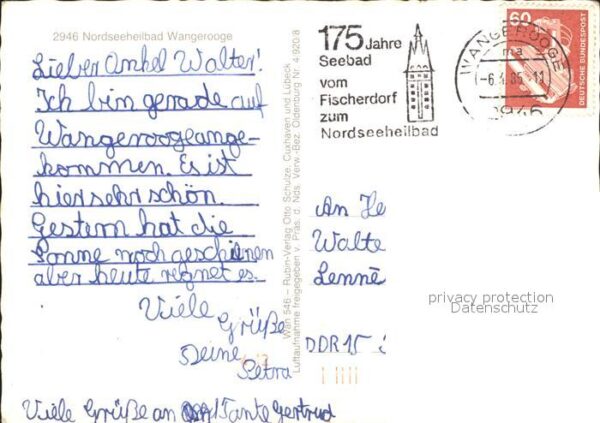 2946 Nordseeheilbad Wangerooge
Lieber Onkel Walter!
Ich bin gerade auf
Wangeroogeange-
kommen. Es ist
hier sehr schön.
Gestern hat die
Sonne noch geschienen
aber heute regnet es.
Viele
Grüße
Deine
Petra
Viele Grüße an Tante Gertrud
Wan 546 – Rubin-Verlag Otto Schulze, Cuxhaven und Lübeck
Luftaufnahme freigegeben v. Präs. d. Nds. Verw.-Bez. Oldenburg Nr. 4 920 8
175 Jahre
Seebad
vom
Fischerdorf
zum
Nordseeheilbad
WANGEROOGE
ma
-6.4.85-11
2946
60
DEUTSCHE BUNDESPOST
An He
Walte
Lenné
DDR 15
privacy protection
Datenschutz